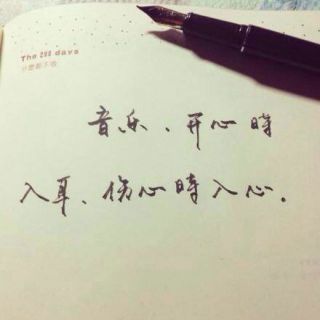 The 288 days
音乐、开心時
入耳、伤心時入心。